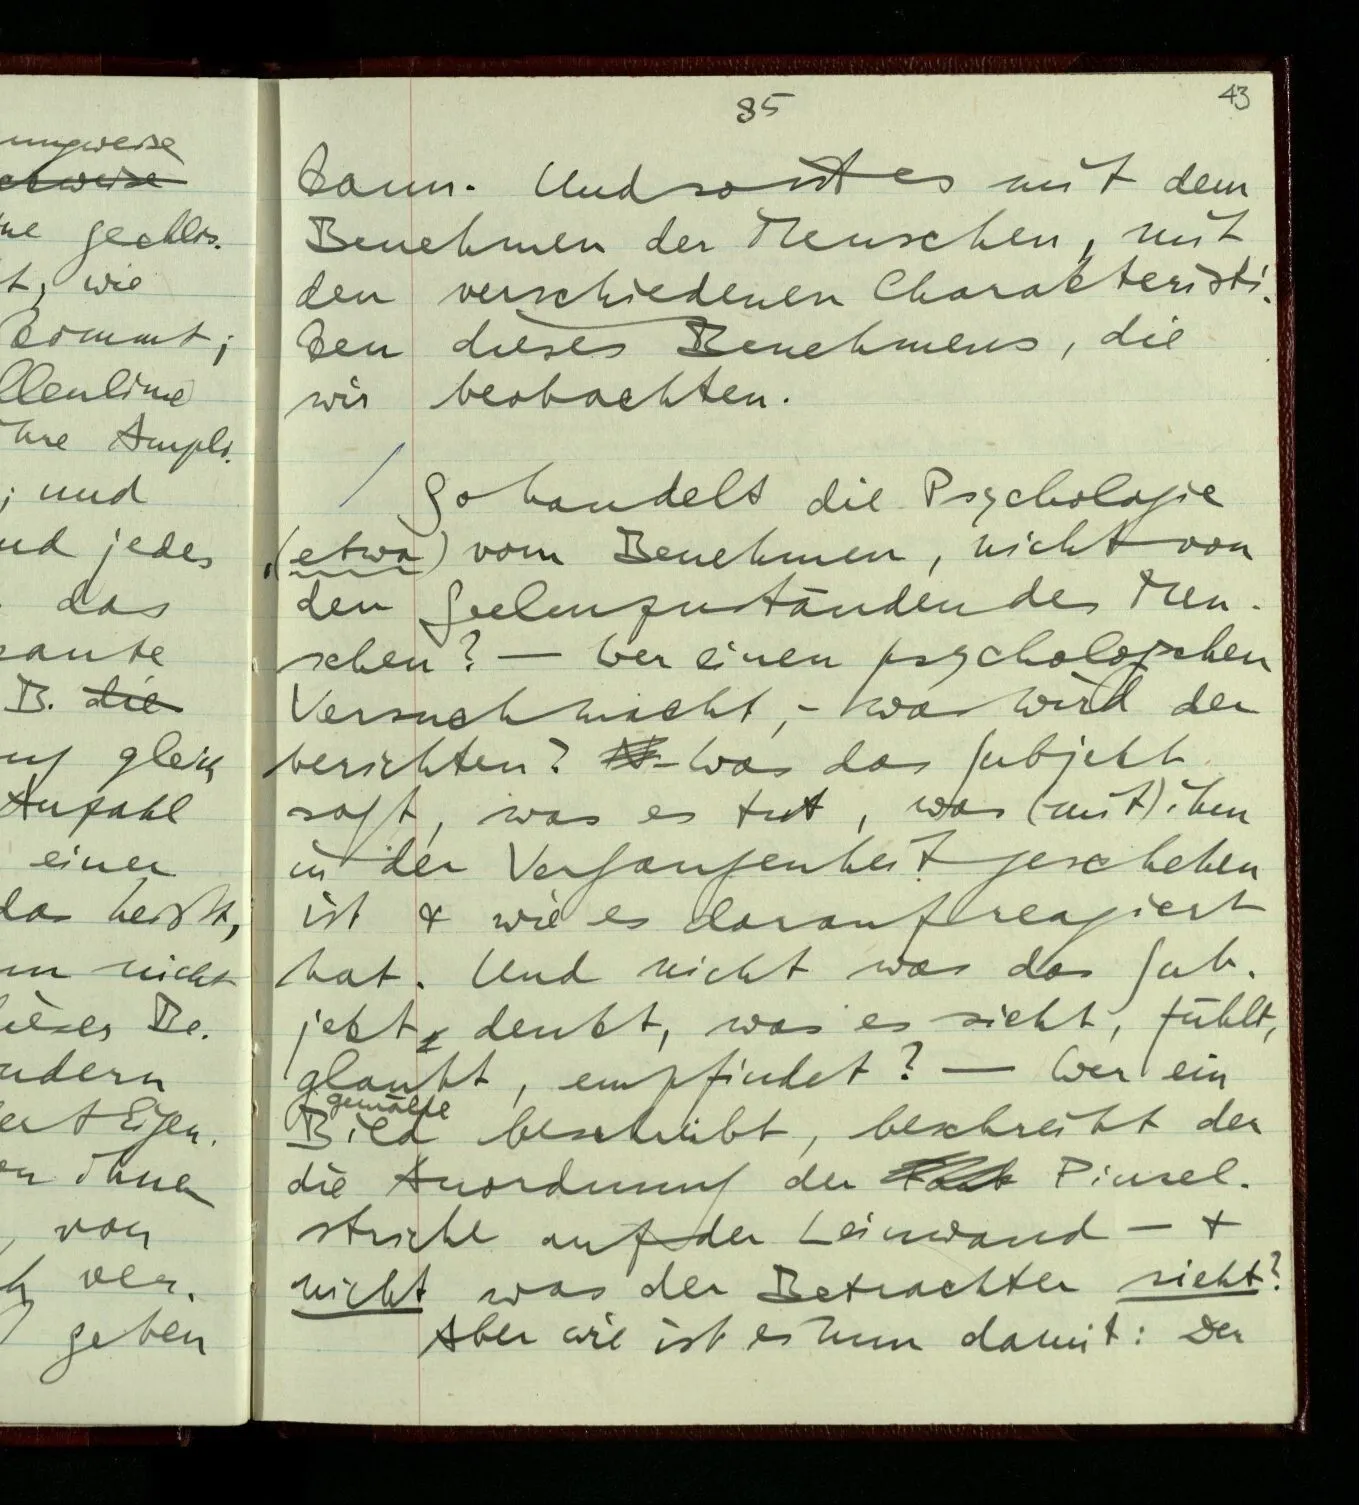 ungweise
ne gechlos.
t, wie
kommt;
llenlinie
ihre Ampli.
; und
nd jedes
das
sante
B. die
ng gleich
Anzahl
einer
das heißt,
nn nicht
dieses Be.
ndern
ert Eigen.
on ihnen
, von
h ver.
geben
85
43
kann. Und so ist es mit dem
Benehmen der Menschen, mit
den verschiedenen Charakteristi.
ken dieses Benehmens, die
wir beobachten.
/ So handelt die Psychologie
(etwa) vom Benehmen, nicht von
den Seelenzuständen des Men-
schen? — Wer einen psychologischen
Versuch macht, – was wird der
berichten? – Was das Subjekt
sagt, was es tut, was (mit) ihm
in der Vergangenheit geschehen
ist & wie es darauf reagiert
hat. Und nicht was das Sub-
jekt denkt, was es sieht, fühlt,
glaubt, empfindet? — Wer ein
gemälde
Bild beschreibt, beschreibt der
die Anordnung der Pinsel-
striche auf der Leinwand – &
nicht was der Betrachter sieht?
Aber wie ist es nun damit: Der